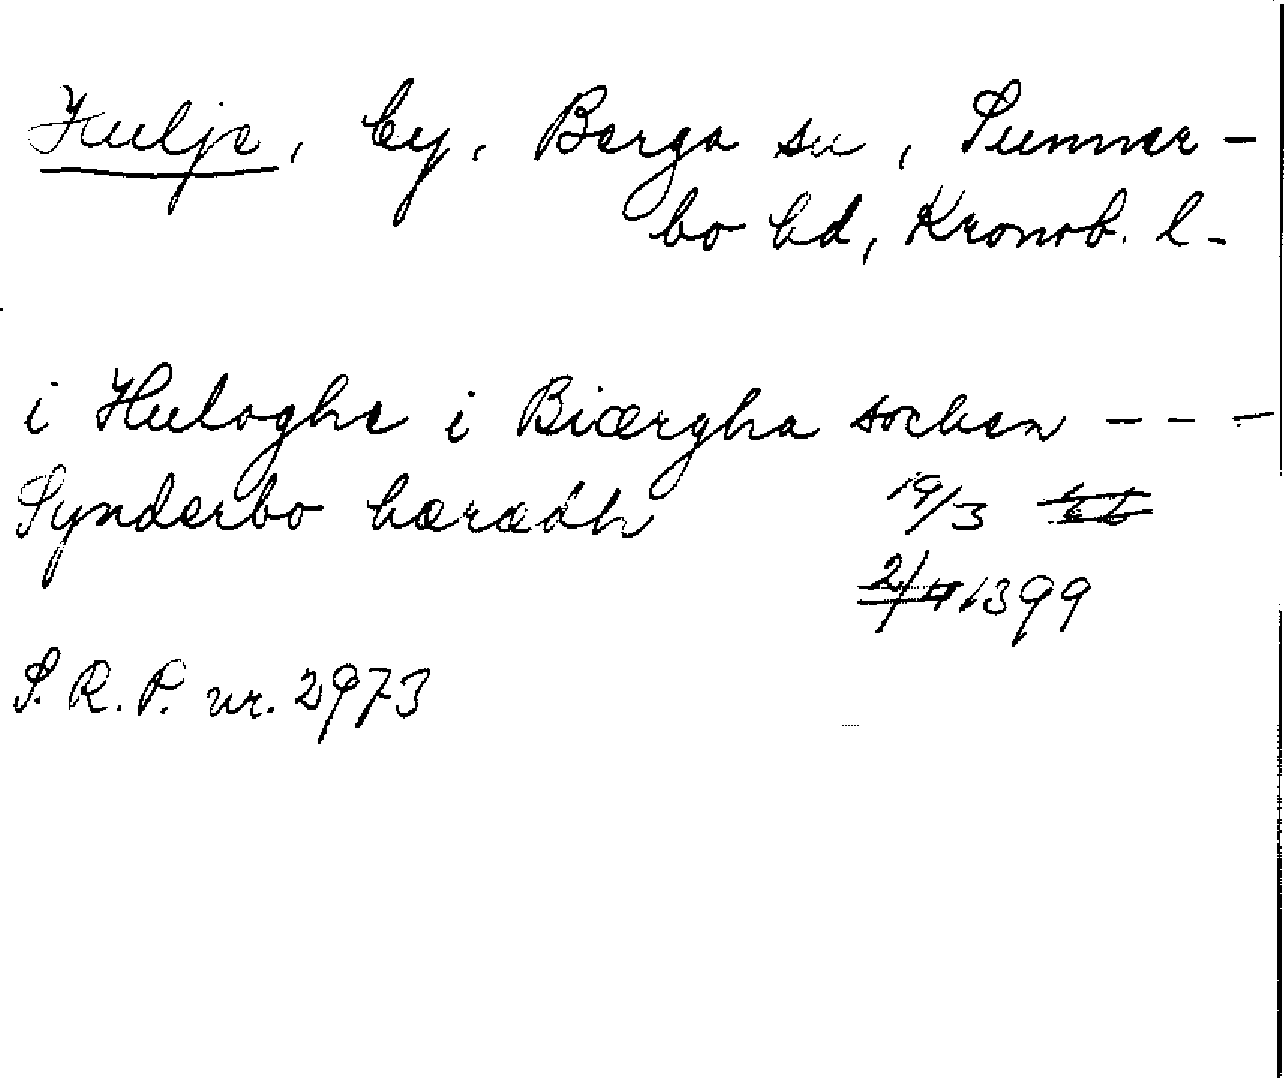 Hulje, by, Berga sn, Sunner-
bo hd, Kronob. l.
i Huloghe i Biærgha sochen - - -
Synderbo hæradh 19/3
1399
S. R. P. nr. 2973